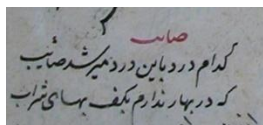 صائب
کدام درد باین درد میرسد صائب
که در بهار ندارم بکف بهای شراب